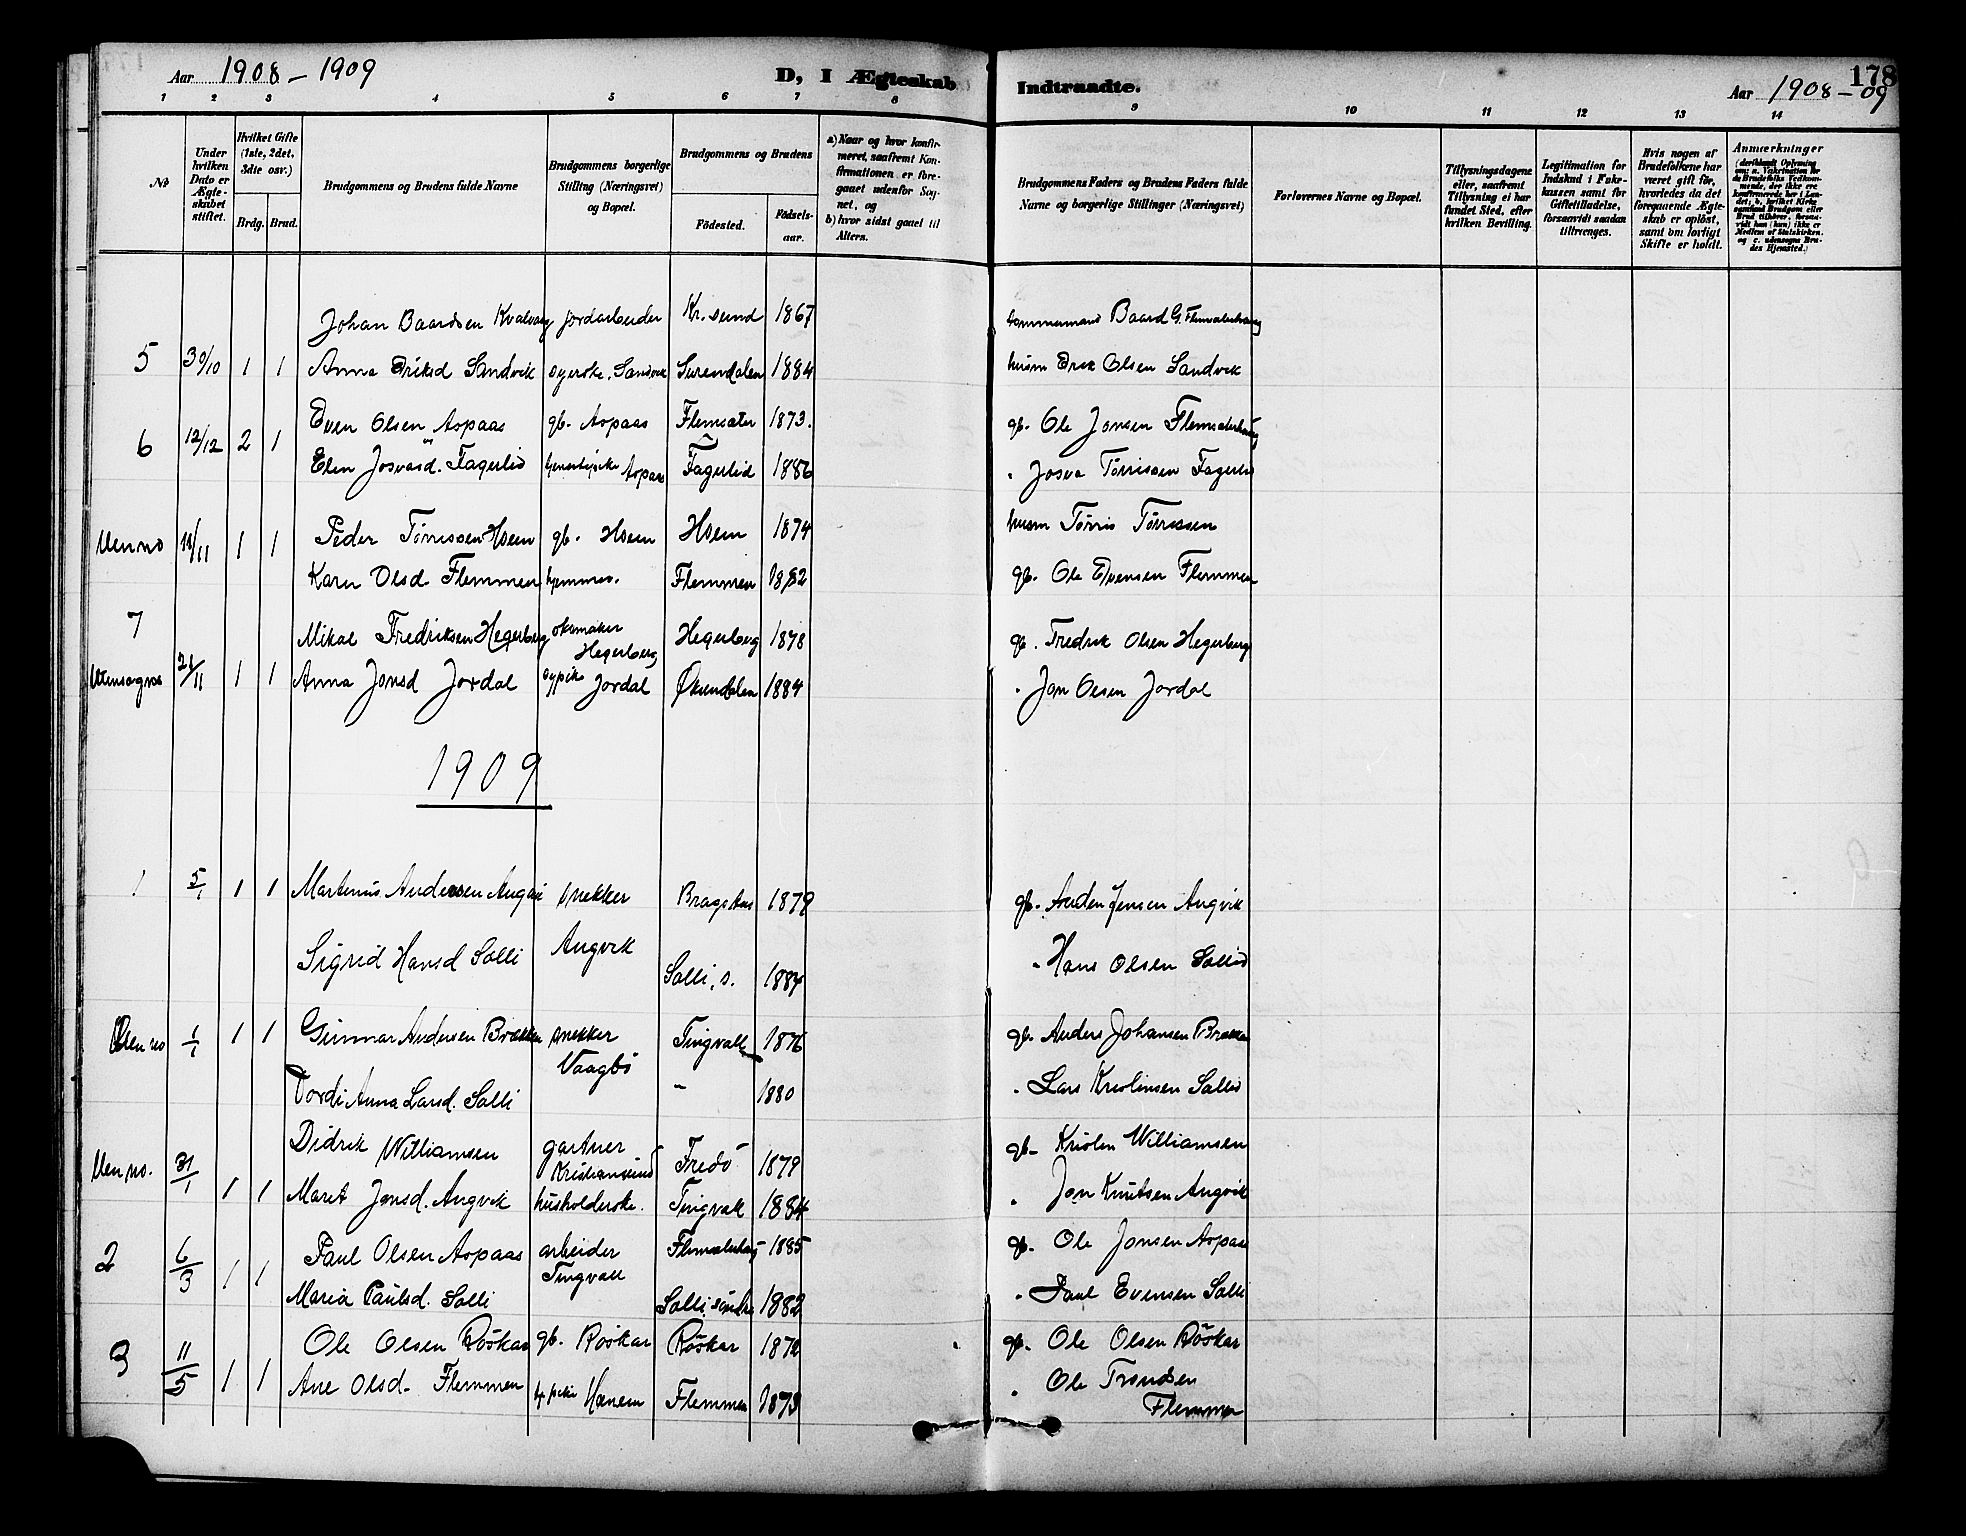 Aar 1908-1909 D, I Ægteskab Indtraadte. Aar 1908-09 178
1 2 3 4 5 6 7 8 9 10 11 12 13 14
№
Under hvilken Dato er Ægteskabet stiftet.
Hvilket Gifte (1ste, 2det, 3dte osv.)
Brdg. Brud.
Brudgommens og Brudens fulde Navne
Brudgommens borgerlige Stilling (Næringsvei) og Bopæl.
Brudgommens og Brudens
Födested. Födselsaar.
a) Naar og hvor konfirmeret, saafremt Konfirmationen er foregaaet udenfor Sognet, og
b) hvor sidst gaaet til Alters.
Brudgommens Faders og Brudens Faders fulde Navne og borgerlige Stillinger (Næringsvei)
Forlovernes Navne og Bopæl.
Tillysningsdagene eller, saafremt Tillysning ei har fundet Sted, efter hvilken Bevilling.
Legitimation for Indskud i Enkekassen samt for Giftetilladelse, forsaavidt saadan tiltrænges.
Hvis nogen af Brudefolkene har været gift för, hvorledes da det foregaaende Ægteskab er oplöst, samt om lovligt Skifte er holdt.
Anmærkninger
Johan Baardsen Kvalvaag jordarbeider Kr.sund 1867 Baard G. Flemsæterhaug
5 30/10 1 1 Anna Eriksd Sandvik syerske, Sandvik Surendalen 1884 husm Erik Olsen Sandvik
Even Olsen Aspaas gb. Aspaas Flemsæter 1873. gb. Ole Jonsen Flemsæterhaug
6 12/12 2 1
Elen Josvasd. Fagerlid Aspaas Fagerlid 1886 " Josva Törrissen Fagerlid
Peder Törrissen Hoem gb. Hoem Hoem 1874 husm Törris Törrissen
Uen no 14/11 1 1
Karen Olsd Flemmen hjemmev. Flemmen 1882 gb. Ole Evensen Flemmen
7
Mikal Fredriksen Hegerberg skomaker Hegerberg Hegerberg 1878 gb. Fredrik Olsen Hegerberg
Utensogns 21/11 1 1 Anna Jonsd Jordal sypike Jordal Øksendalen 1884 " Jon Olsen Jordal
1909
1 5/1 1 1 Martinus Andersen Angvik snekker 1879 gb. Anders Jensen Angvik
Sigrid Hansd Solli Angvik Solli, s. 1884 " Hans Olsen Sollid
Uen no 1/1 1 1 Gunnar Andersen Brække snekker Tingvoll 1876 gb. Anders Johansen Brække
Vaagbö
Tordi Anna Larsd. Solli " 1880 " Lars Kristinsen Sollid
Didrik Williamsen gartner Kristiansund Fredö 1879 gb. Kristen Williamsen
Uen no. 31/1 1 1
Maret Jonsd. Angvik husholderske. Tingvoll 1884 " Jon Knutsen Angvik
Paul Olsen Aspaas arbeider Flemsæterhaug 1885 gb. Ole Jonsen Aspaas
2 6/3 1 1 Tingvoll
Maria Paulsd. Solli Solli, söndre 1882 " Paul Evensen Solli
Ole Olsen Röskar gb. Röskar Röskar 1872 gb. Ole Olsen Röskar
3 11/5 1 1
Ane Olsd. Flemmen Flemmen 1873 " Ole Trondsen
Flemmen